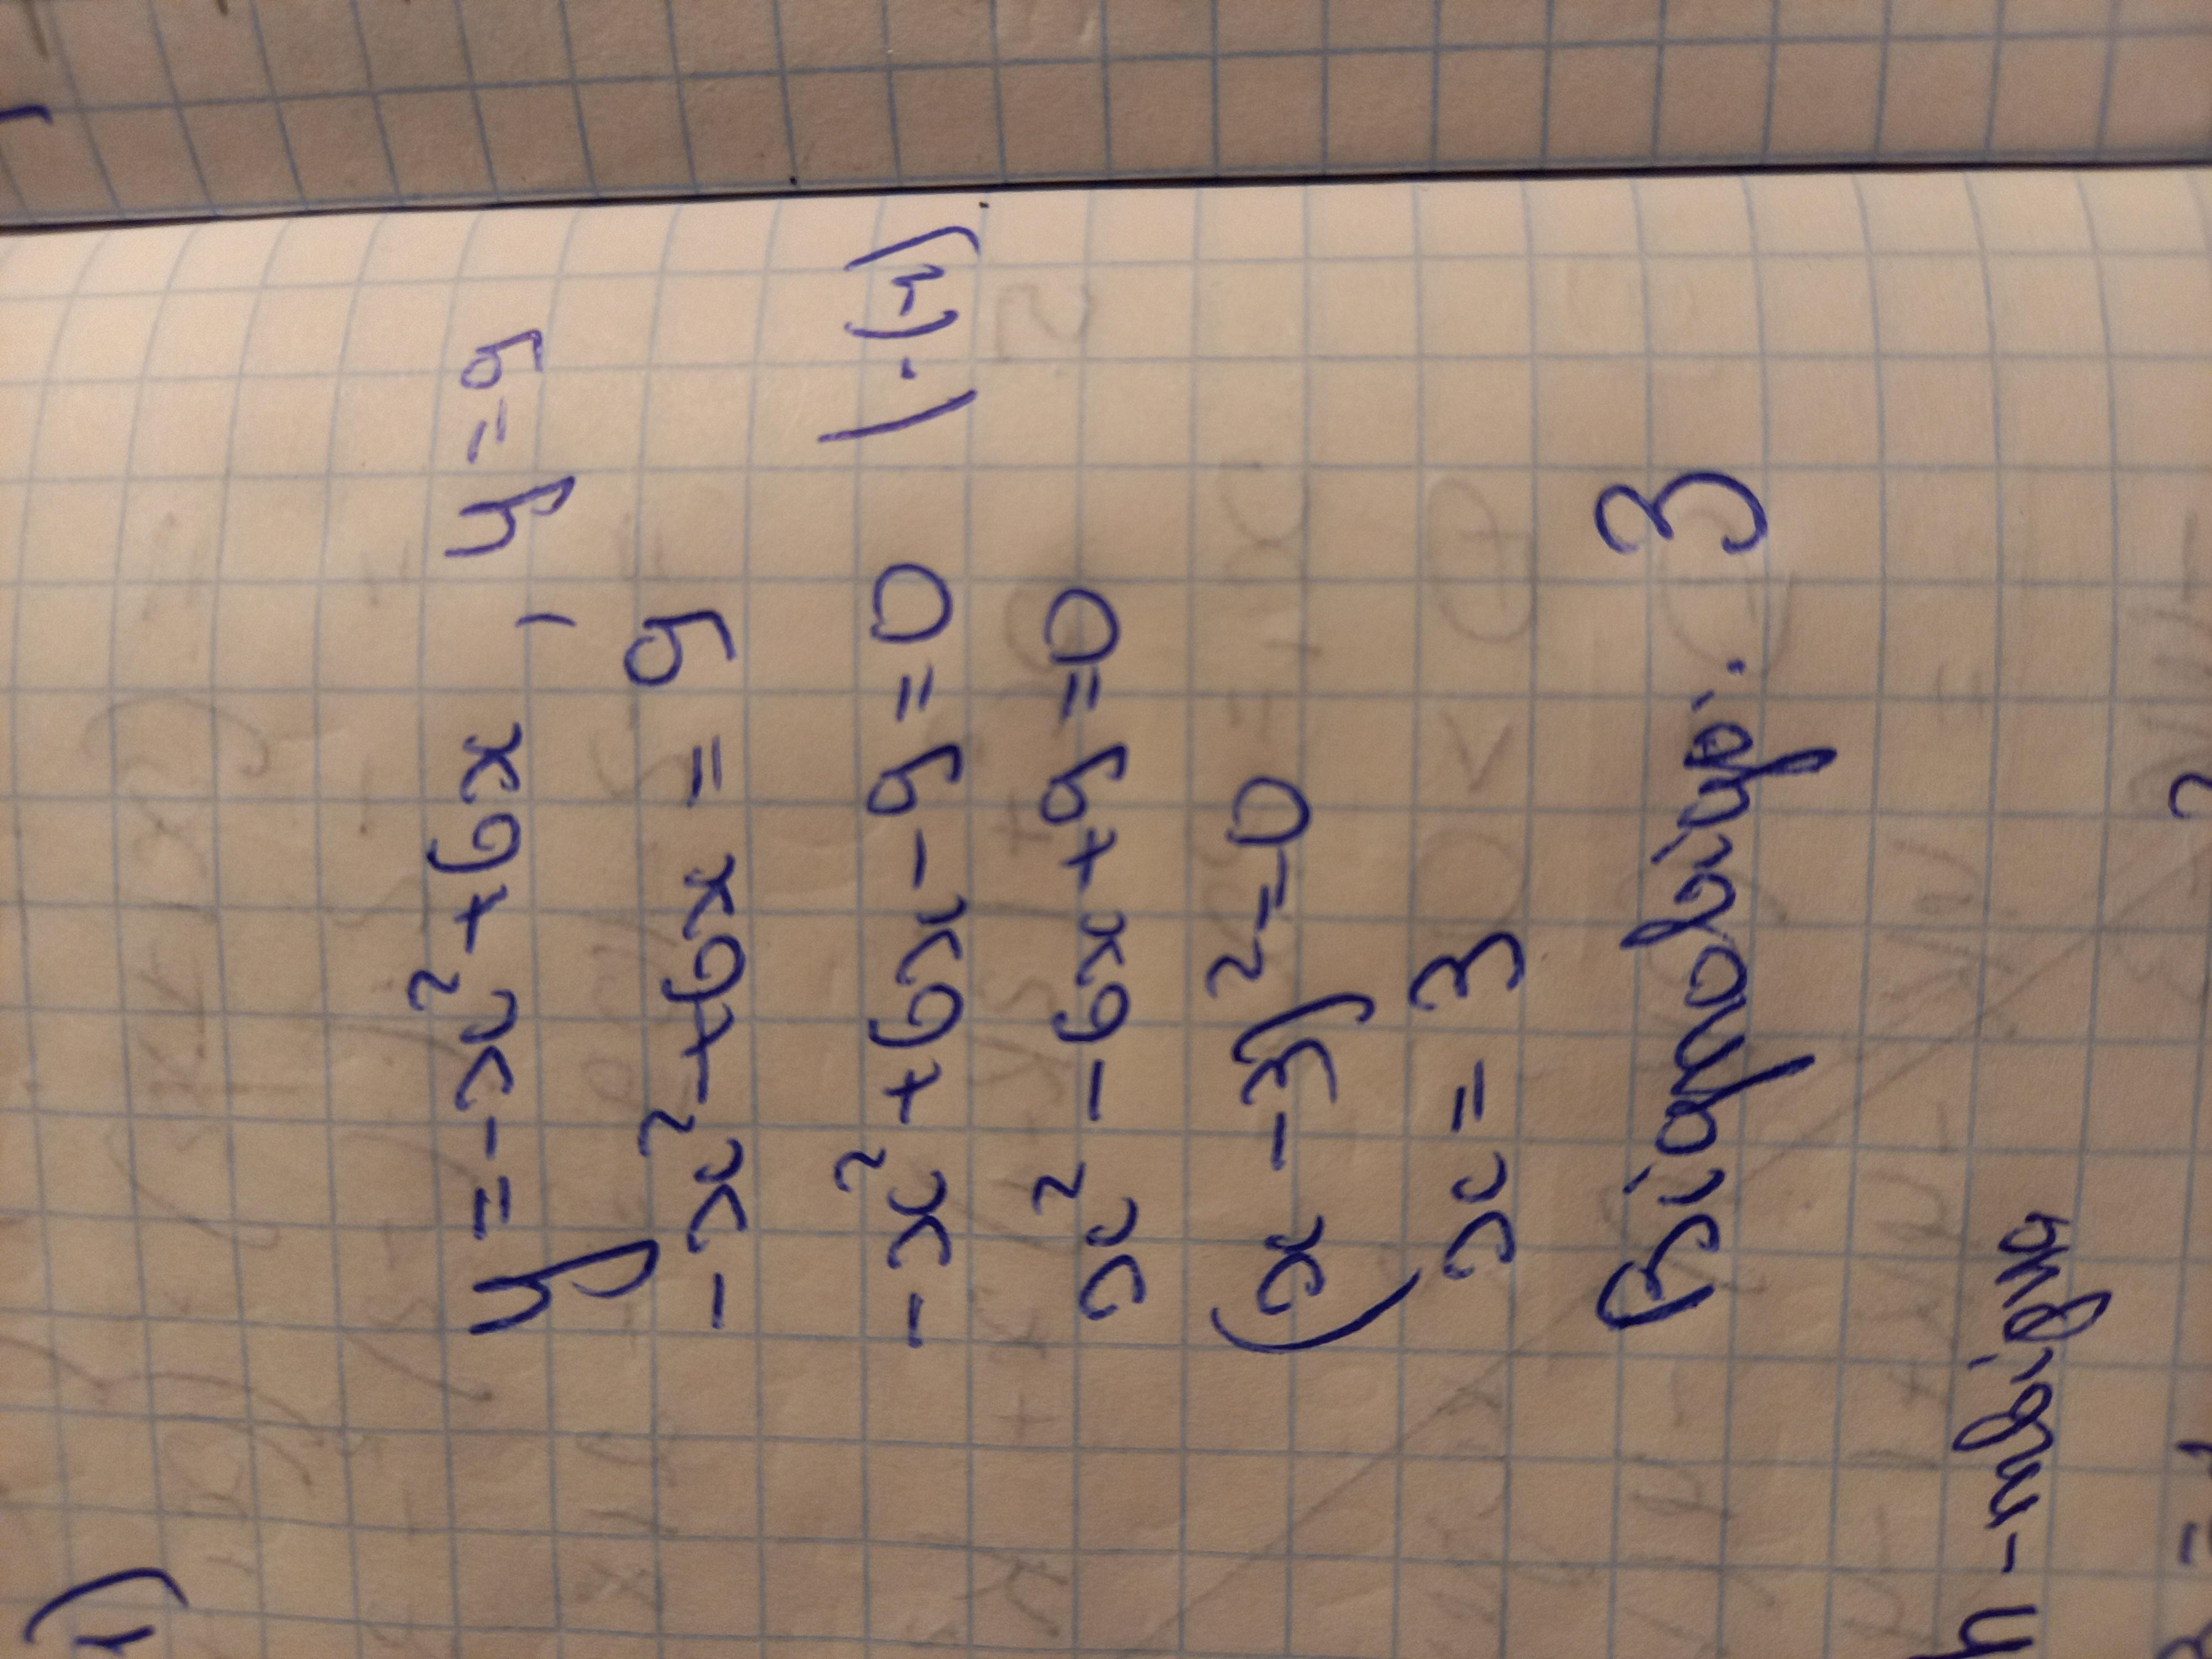 1)
y = -x² + 6x, y = 9
-x² + 6x = 9
-x² + 6x - 9 = 0 (·(-1))
x² - 6x + 9 = 0
(x - 3)² = 0
x = 3
Відповідь: 3